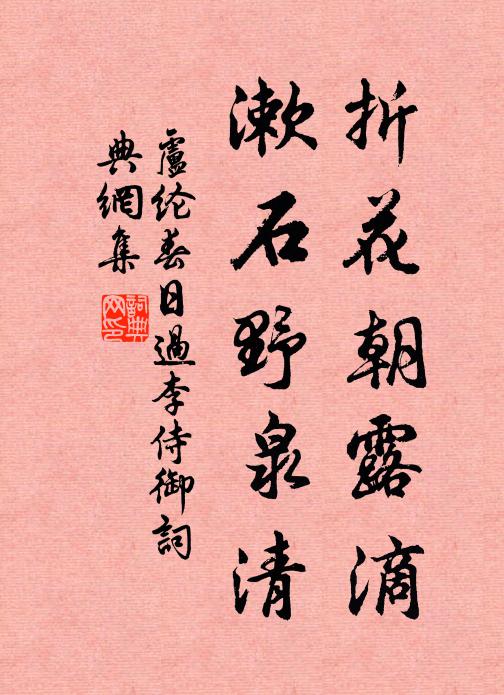 折花朝露滴
漱石野泉清
盧纶春日過李侍御詞
典網集
詞典
网印